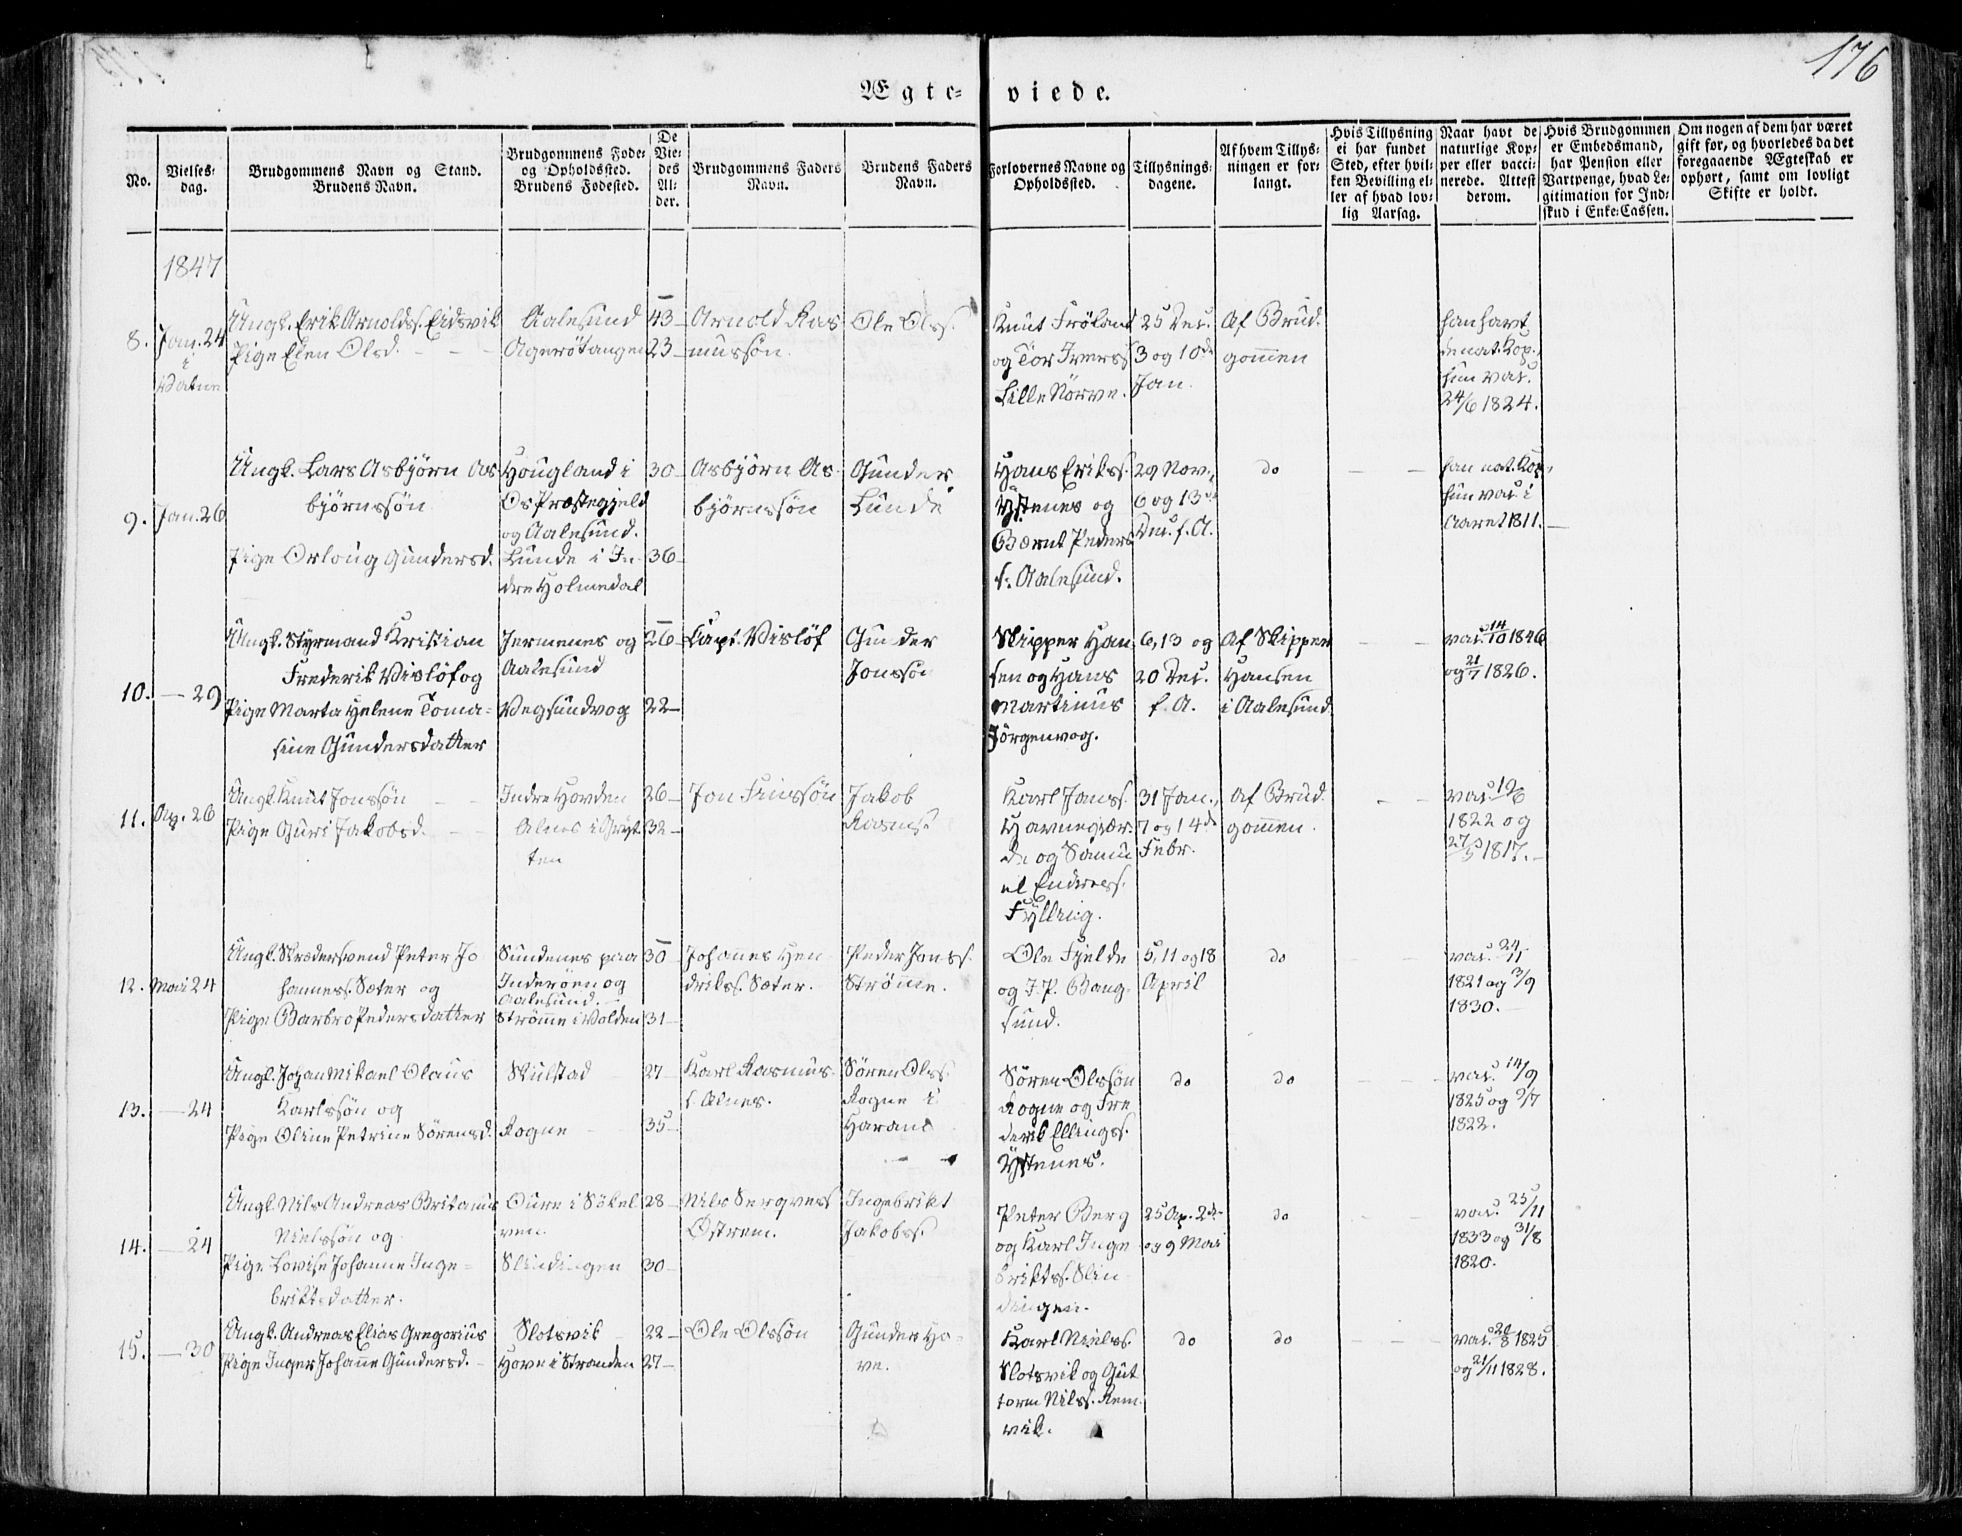 176
Ægte- viede.
No.
Vielses-
dag.
Brudgommens Navn og Stand.
Brudens Navn.
Brudgommens Føde-
og Opholdssted.
Brudens Fødested.
De
Vie-
des
Al-
der.
Brudgommens Faders
Navn.
Brudens Faders
Navn.
Forlovernes Navne og
Opholdssted.
Tillysnings-
dagene.
Af hvem Tillys-
ningen er for-
langt.
Hvis Tillysning
ei har fundet
Sted, efter hvil-
ken Bevilling el-
ler af hvad lov-
lig Aarsag.
Naar havt de
naturlige Kop-
per eller vacci-
nerede. Attest
derom.
Hvis Brudgommen
er Embedsmand,
har Pension eller
Vartpenge, hvad Le-
gitimation for Ind-
skud i Enke-Cassen.
Om nogen af dem har været
gift før, og hvorledes da det
foregaaende Ægteskab er
ophørt, samt om lovligt
Skifte er holdt.
1847
8.
Jan. 24
i
Vatne
Ungk. Erik Arnoldss. Eidsvik
Pige Elen Olsd. - -
Aalesund
Agerøtangen
43
23
Arnold Ras
mussøn.
Ole Olss.
Knut Frøland
og Tor Iverss
Lille Nørve.
25 Dec.
3 og 10de
Jan.
Af Brud-
gommen
han havt
de nat. Kop.,
hun vac.
24/6 1824.
9.
Jan. 26
Ungk. Lars Asbjørn As
bjørnssøn
Pige Orloug Gundersd.
Hougland i
Os Præstegjeld
og Aalesund.
Lunde i In-
dre Holmedal
30
36
Asbjørn As-
bjørnssøn
Gunder
Lunde
Hans Erikss.
Ystenes og
Bernt Peders
s. Aalesund.
29 Nov.,
6 og 13de
Dec. f. A.
do
han nat. Kop.,
hun vac. i
Aaret 1811.
10.
— 29
Ungk. Styrmand Kristian
Frederik Visløf og
Pige Marta Helene Toma-
sine Gundersdatter
Jermenes og
Aalesund
Vegsundvog
26
22
Capt. Visløf
Gunder
Jonssøn
Skipper Han
sen og Hans
Martinus
Jørgenvog.
6, 13 og
20 Dec.
f. A.
Af Skipper
Hansen
i Aalesund
vac. 14/10 1846
og 21/7 1826.
11.
Ap. 26
Ungk. Knut Jonssøn
Pige Guri Jakobsd.
Indre Hovden
Alnes i Gryt-
ten
26
32
Jon Finssøn
Jakob
Rasms.
Karl Jonss.
Havnegjær-
de og Samu
el Endress.
Fylling.
31 Jan.,
7 og 14de
Febr.
Af Brud-
gommen.
1822 og
27/5 1817.
12.
Mai 24
Ungk. Skrædersvend Peter Jo
hanness. Sæter og
Pige Barbro Pedersdatter
Sundenes paa
Inderøen og
Aalesund.
Strømme i Volden
30
31
Johannes Hen
drikss. Sæter.
Peder Jonss.
Strømme.
Ole Fjelde
og J. P. Bang-
sund.
5, 11 og 18
April
do
vac. 24/11
1821 og 3/9
1830.
13.
— 24
Ungk. Johan Mikael Olaus
Karlssøn og
Pige Oline Petrine Sørensd.
Skulstad
Rogne
27
35
Karl Rasmus-
s. Alnes.
Søren Olss.
Rogne i
Haram
Søren Olssøn
Rogne og Fre
derik Ellingss.
Ystenes.
do
do
vac. 14/9
1825 og 2/7
1822.
14.
— 24
Ungk. Nils Andreas Britanus
Nielssøn og
Pige Lovise Johanne Inge-
briktsdatter.
Oure i Søkel
ven.
Slindingen
28
30
Nils
Østrem.
Ingebrikt
Jakobss.
Peter Berg
og Karl Inge
brikts. Slin-
dingen.
25 Ap. 2de
og 9 Mai
do
vac. 25/11
1833 og 31/8
1820.
15.
— 30
Ungk. Andreas Elias Gregorius
Pige Inger Johanne Gundersd.
Slotsvik
Hove i Stranden
22
27
Ole Olssøn
Gunder Ho-
ve.
Karl Nielss.
Slotsvik og Gut
torm Nilss. Rem-
vik.
do
do
vac. 20/8 1825
og 21/11 1828.